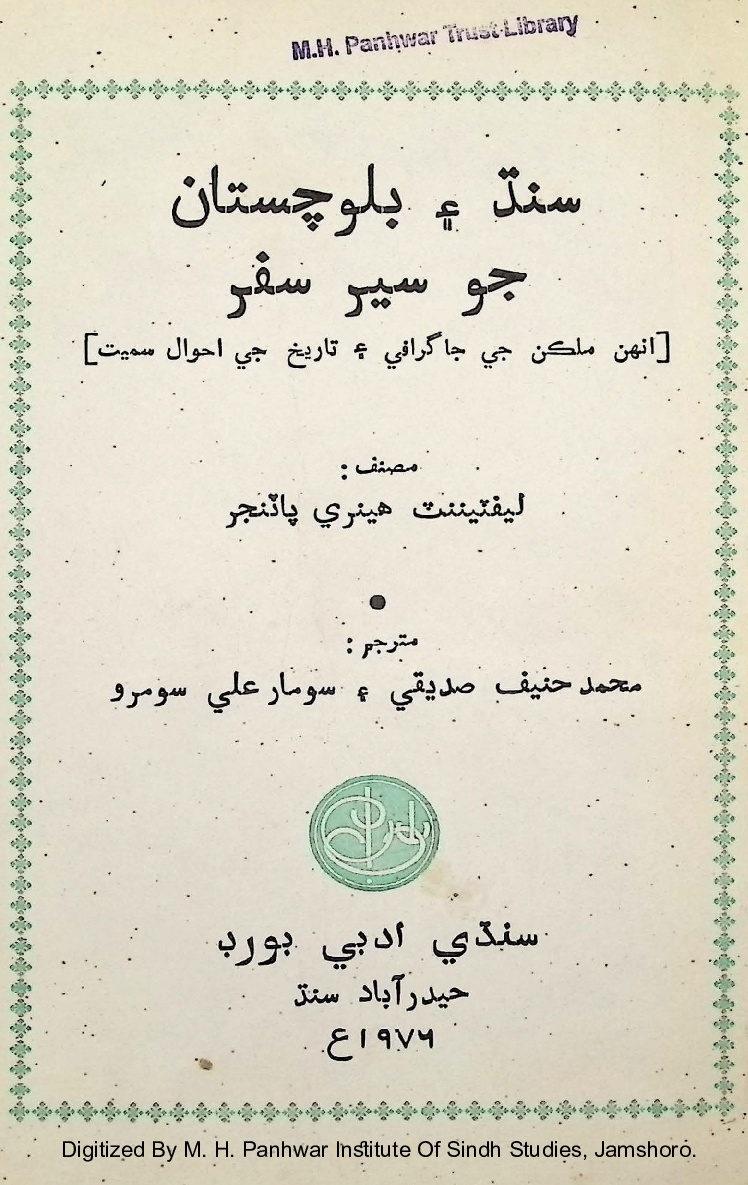 M.H. Panhwar Trust Library
سنڌ ۽ بلوچستان
جو سير سفر
[انهن ملڪن جي جاگرافي ۽ تاريخ جي احوال سميت]
مصنف :
ليفٽيننٽ هينري پاٽنجر
مترجم :
محمد حنيف صديقي ۽ سومار علي سومرو
سنڌي ادبي بورڊ
حيدرآباد سنڌ
۱۹۷۶ع
Digitized By M. H. Panhwar Institute Of Sindh Studies, Jamshoro.